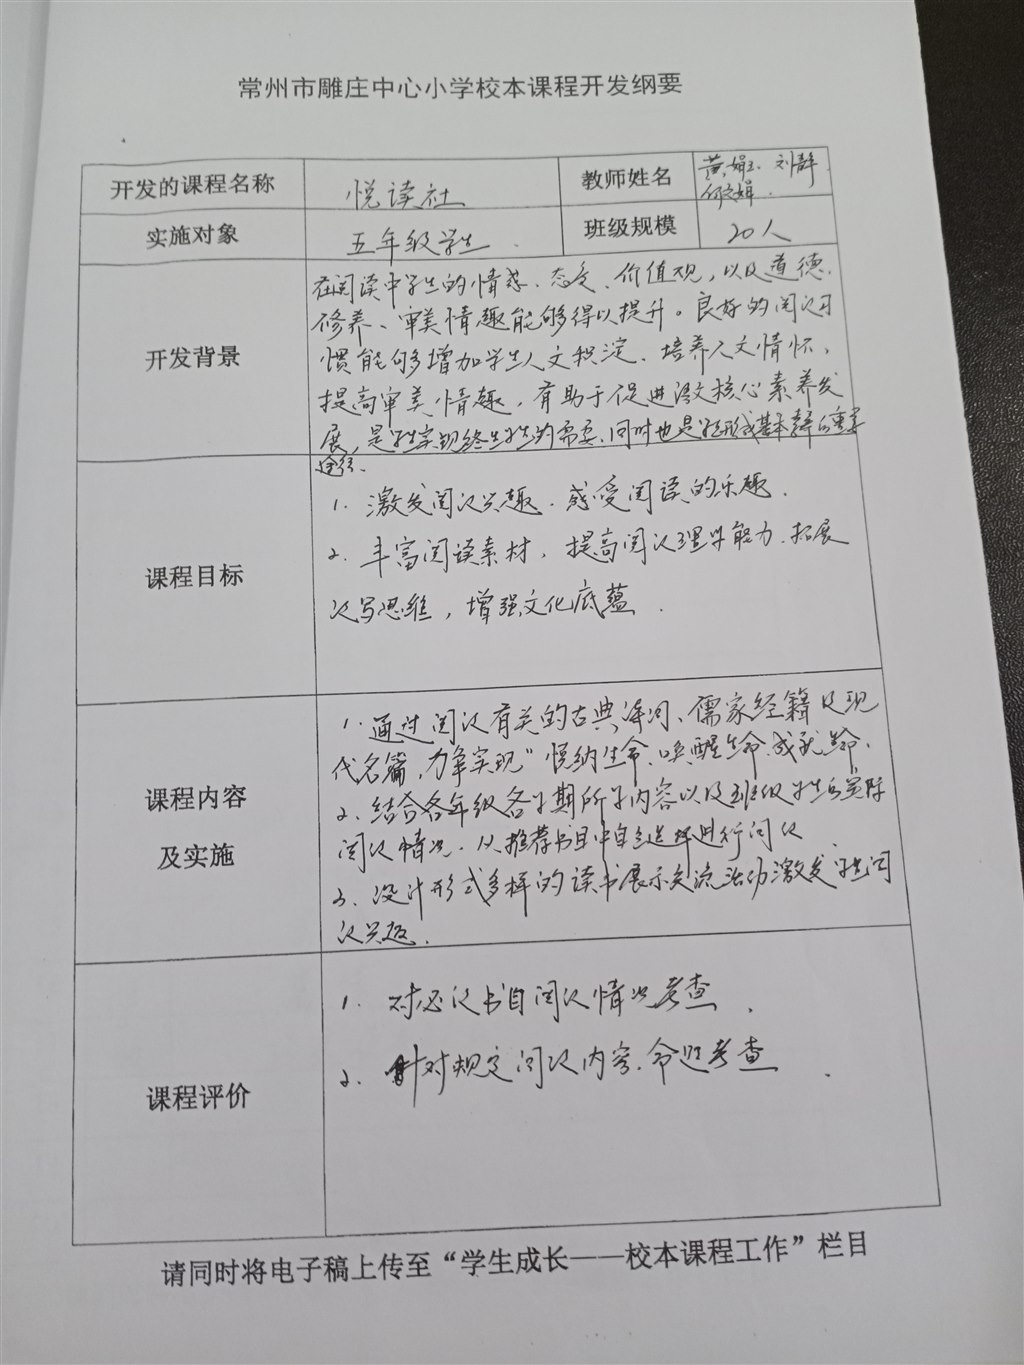 常州市雕庄中心小学校本课程开发纲要
开发的课程名称 悦读社 教师姓名 刘静
实施对象 五年级学生 班级规模 20人
开发背景
在阅读中学生的情感、态度、价值观，以及道德
修养、审美情趣能够得以提升。良好的阅读习
惯能够增加学生人文积淀、培养人文情怀，
提高审美情趣，有助于促进语文核心素养发
展，是学生实现终生学习的需要，同时也是学生形成基本素养的重要
途径。
课程目标
1. 激发阅读兴趣．感受阅读的乐趣．
2. 丰富阅读素材，提高阅读理解能力．拓展
读写思维，增强文化底蕴．
课程内容
及实施
1. 通过阅读有关的古典诗词、儒家经籍及现
代名篇，力争实现"悦纳生命、唤醒生命、成就生命．
2、结合各年级各学期所学内容以及班级学生的实际
阅读情况．从推荐书目中自主选择进行阅读．
3、设计形式多样的读书展示交流活动激发学生阅
读兴趣．
课程评价
1. 对必读书目阅读情况考查．
2. 针对规定阅读内容．命题考查．
请同时将电子稿上传至“学生成长——校本课程工作”栏目